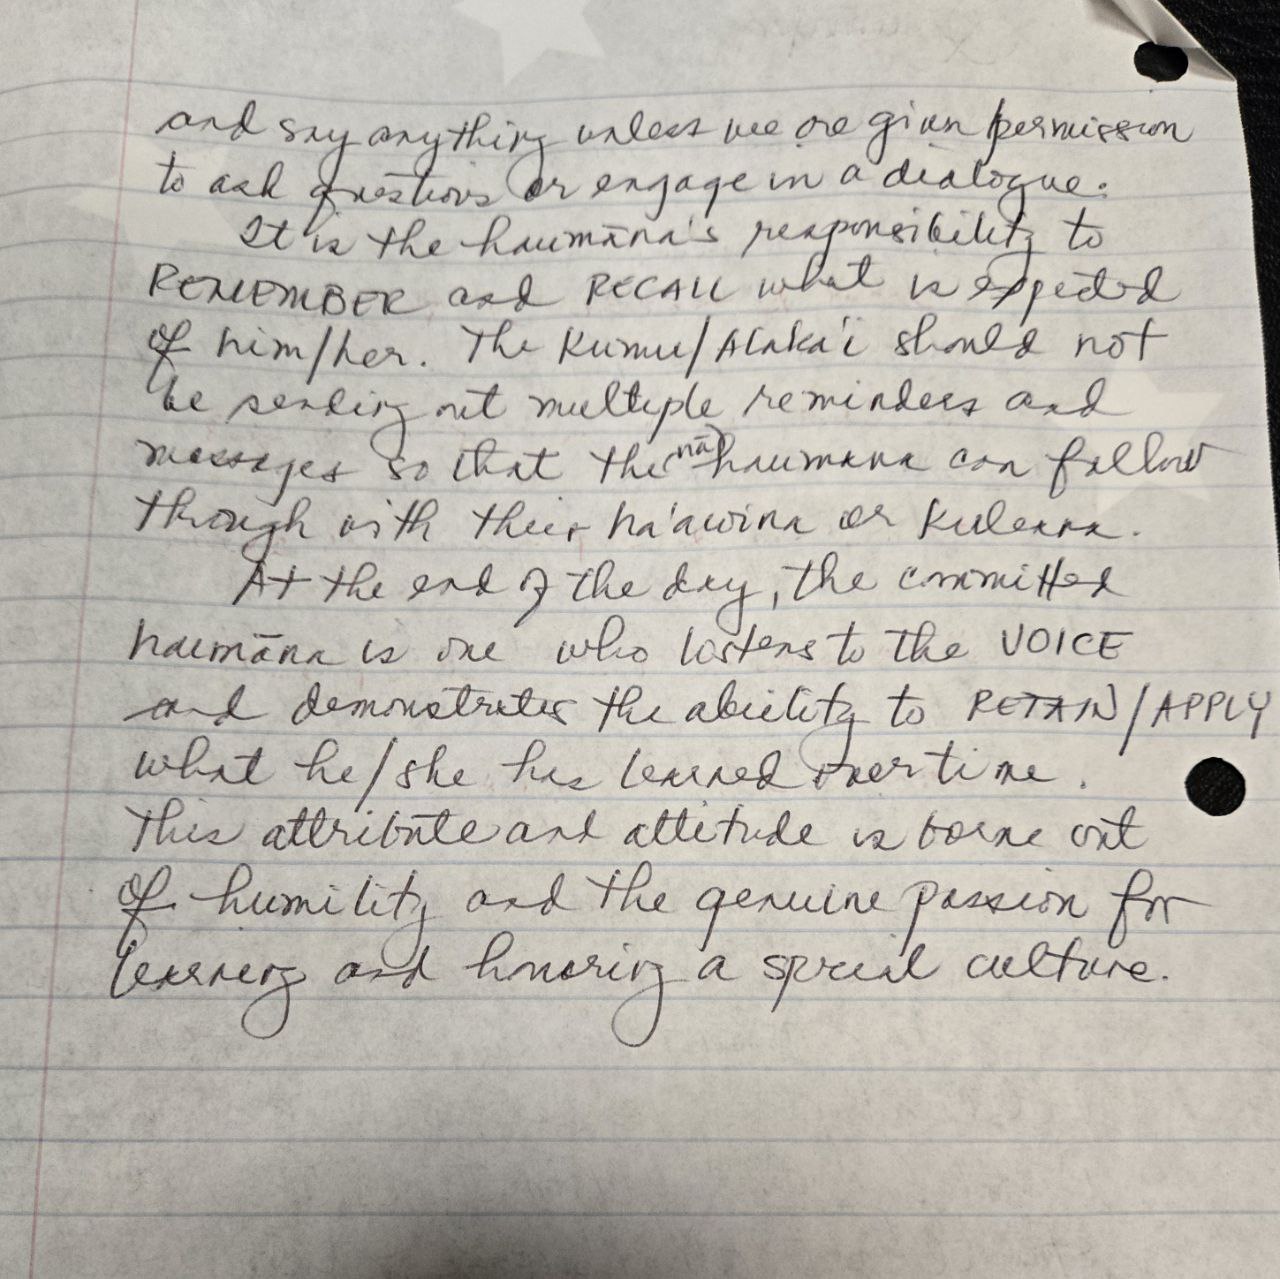 and say anything unless we are given permission
to ask questions or engage in a dialogue.
It is the haumāna's responsibility to
REMEMBER and RECALL what is expected
of him/her. The Kumu/Alaka'i should not
be sending out multiple reminders and
messages so that the (nā) haumana can follow
through with their ha'awina or kuleana.
At the end of the day, the committed
haumāna is one who listens to the VOICE
and demonstrates the ability to RETAIN/APPLY
what he/she has learned over time.
This attribute and attitude is borne out
of humility and the genuine passion for
learning and honoring a special culture.